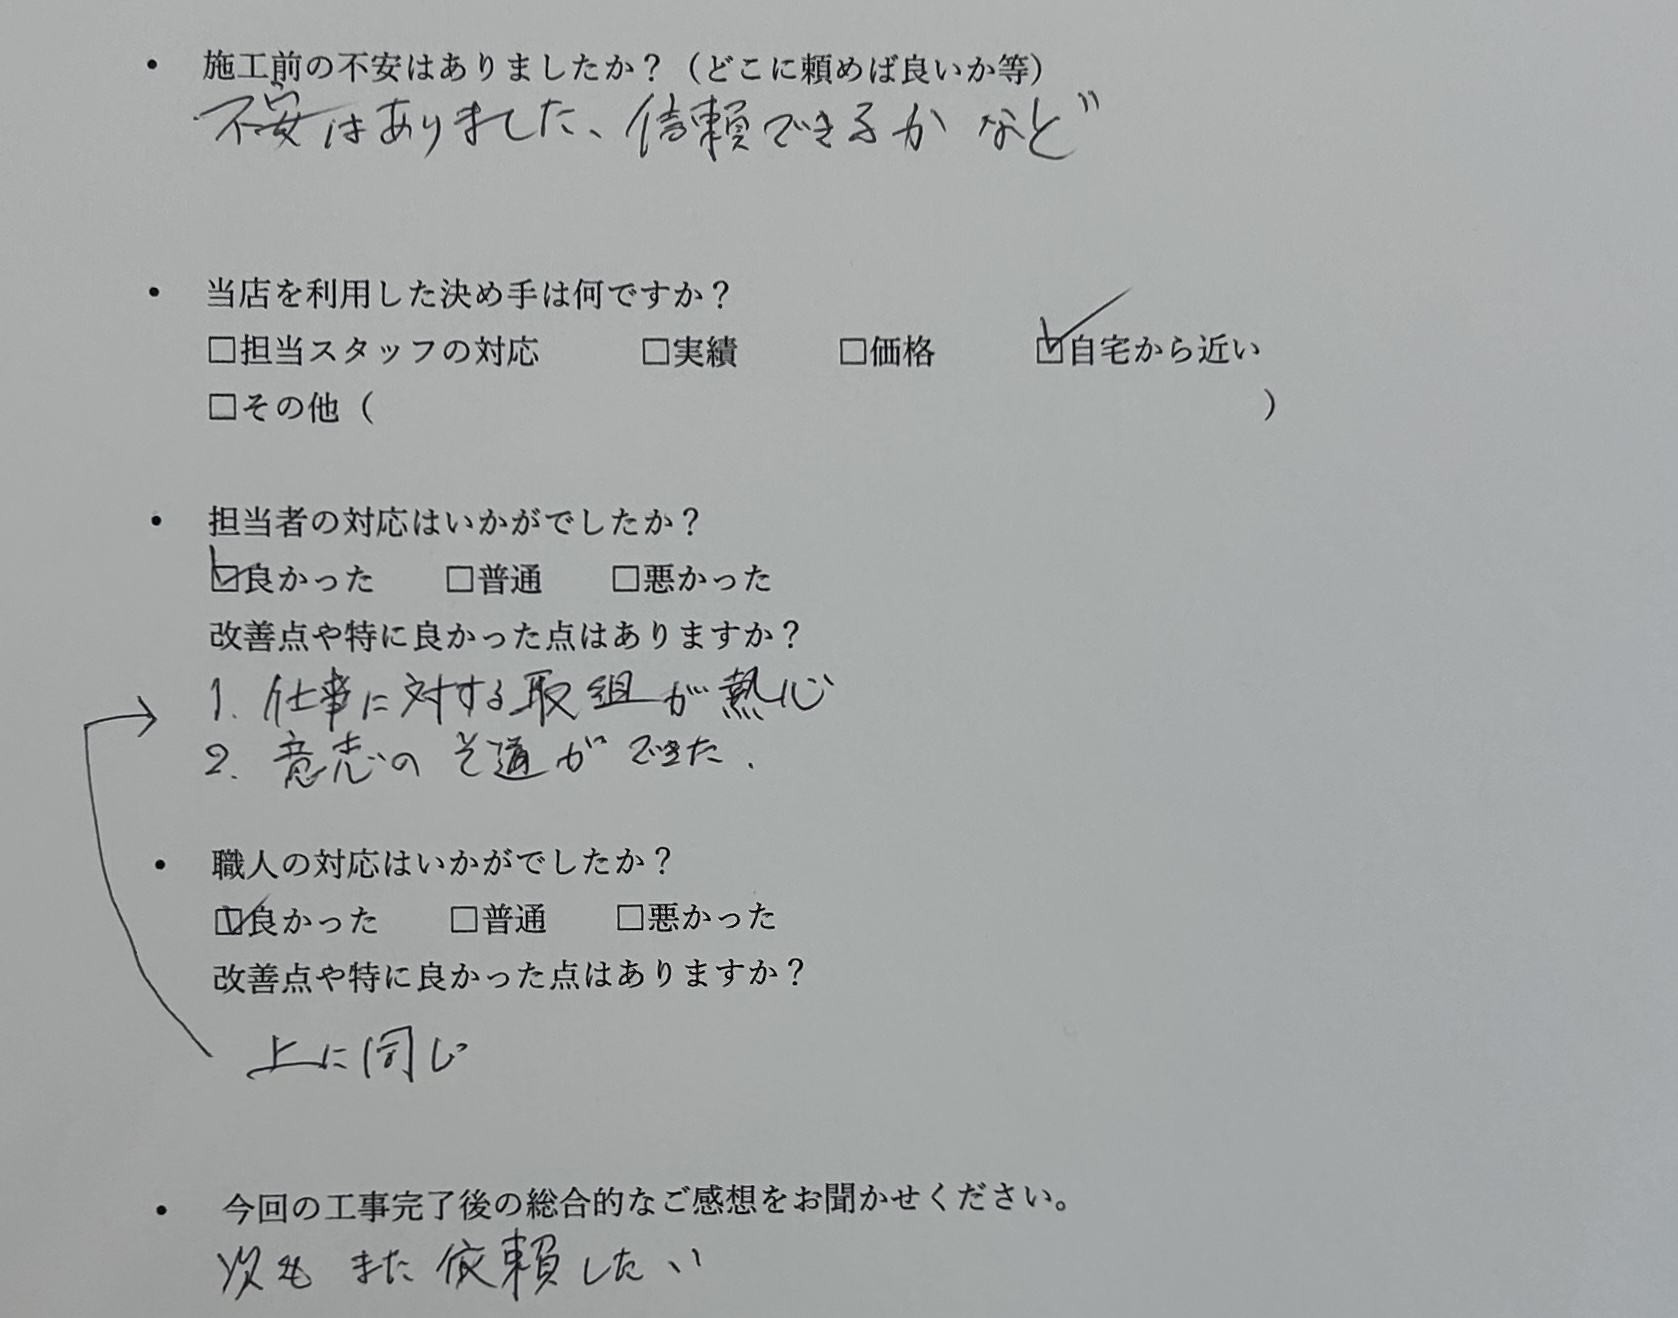 ・ 施工前の不安はありましたか？（どこに頼めば良いか等）
不安はありました、信頼できるか など
・ 当店を利用した決め手は何ですか？
□担当スタッフの対応 □実績 □価格 ☑自宅から近い
□その他（ ）
・ 担当者の対応はいかがでしたか？
☑良かった □普通 □悪かった
改善点や特に良かった点はありますか？
1. 仕事に対する取組が熱心
2. 意志のそ通ができた.
・ 職人の対応はいかがでしたか？
☑良かった □普通 □悪かった
改善点や特に良かった点はありますか？
上に同じ
・ 今回の工事完了後の総合的なご感想をお聞かせください。
次も また 依頼したい